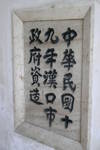 中華民國十
九年漢口市
政府資造